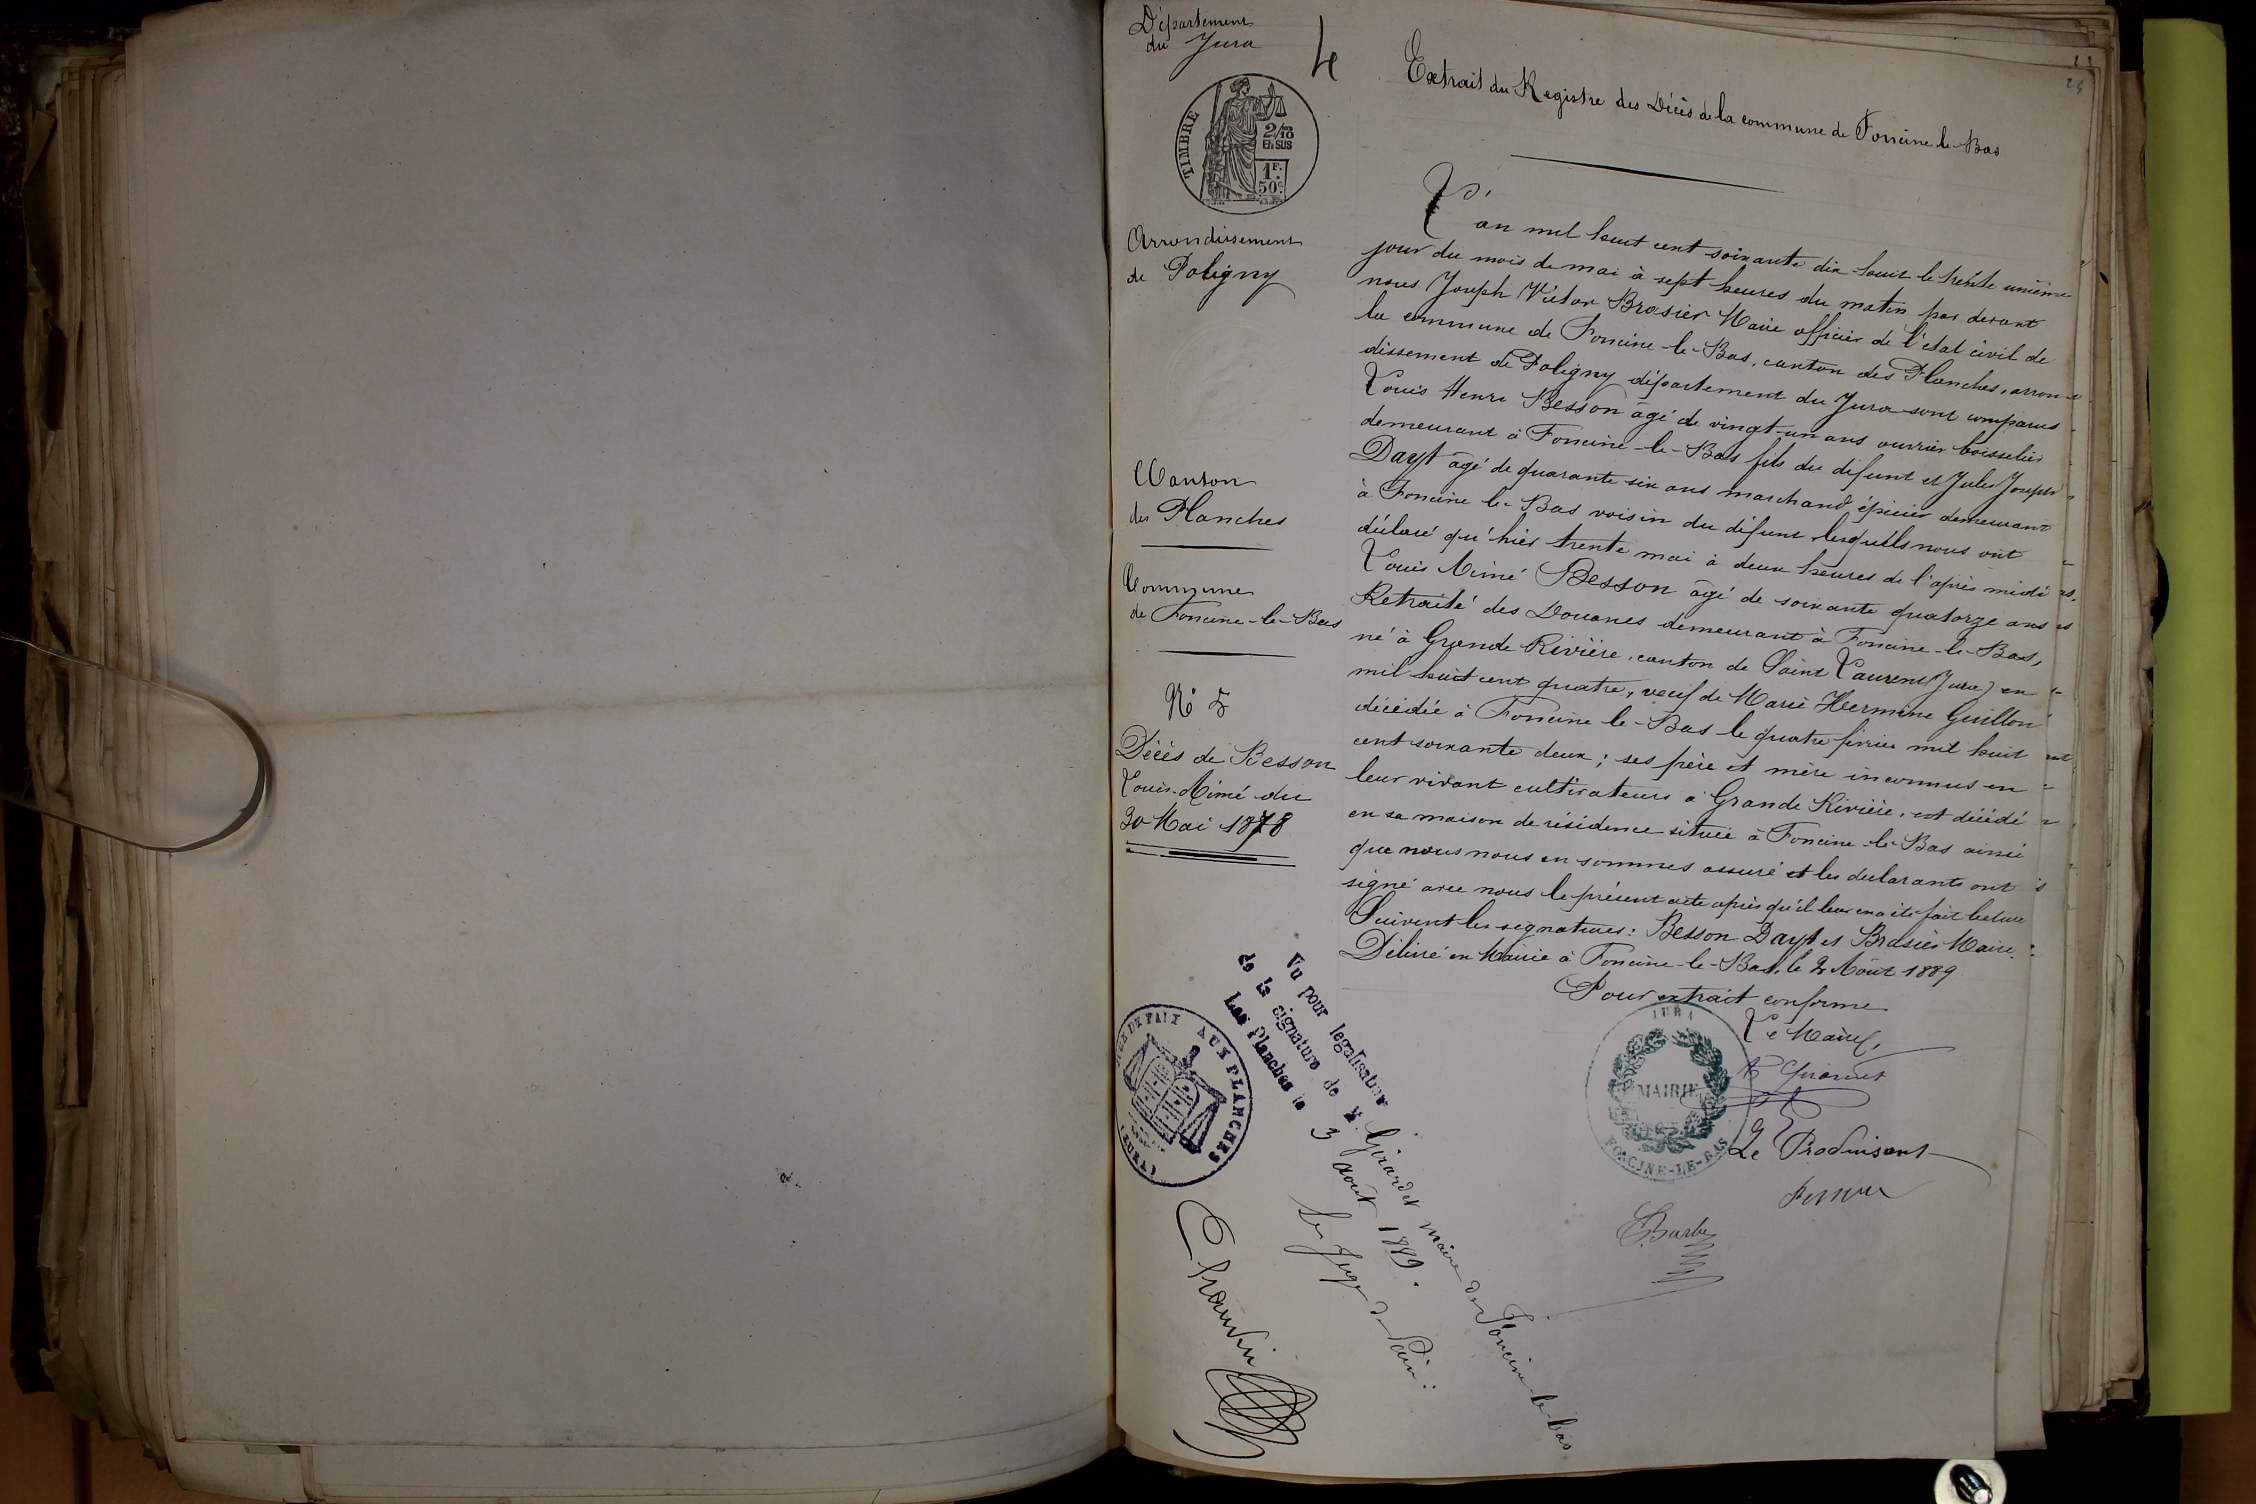 Département
du Jura
4
24
TIMBRE
2/10
EN SUS
1F.
50c.
Arrondissement
de Poligny
Canton
des Planches
Commune
de Foncine-le-Bas
No 5
Décès de Besson
Louis-Aimé du
30 Mai 1878
Extrait du Registre des Décès de la commune de Foncine-le-Bas
L'an mil huit cent soixante dix huit le trente unième
jour du mois de mai à sept heures du matin par devant
nous Joseph Victor Brasier Maire officier de l'état civil de
la commune de Foncine-le-Bas, canton des Planches, arron-
dissement de Poligny département du Jura sont comparus
Louis Henri Besson âgé de vingt-un ans ouvrier boisselier
demeurant à Foncine-le-Bas fils du défunt et Jules Joseph
Dayt âgé de quarante six ans marchand épicier demeurant
à Foncine le-Bas voisin du défunt lesquells nous ont
déclaré qu'hier trente mai à deux heures de l'après midi
Louis Aimé Besson âgé de soixante quatorze ans
Retraité des Douanes demeurant à Foncine-le-Bas,
né à Grande Rivière, canton de Saint Laurent (Jura) en
mil huit cent quatre, veuf de Marie Hermine Guillon
décédée à Foncine le-Bas le quatre février mil huit
cent soixante deux ; ses père et mère inconnus en
leur vivant cultivateurs à Grande Rivière, est décédé
en sa maison de résidence située à Foncine-le-Bas ainsi
que nous nous en sommes assuré et les déclarants ont
signé avec nous le présent acte après qu'il leur en a été fait lecture
Suivent les signatures : Besson Dayt et Brasier Maire.
Délivré en Mairie à Foncine-le-Bas, le 2 Août 1889
Pour extrait conforme
Le Maire,
Girardet
JURA
MAIRIE
FONCINE-LE-BAS
Le Produisant
Besson
Barbe
Vu pour légalisation
de la signature de M. Girardet maire de Foncine-le-bas
Les Planches le 3 août 1889.
Le Juge de Paix :
DE PAIX AUX PLANCHES
(JURA)